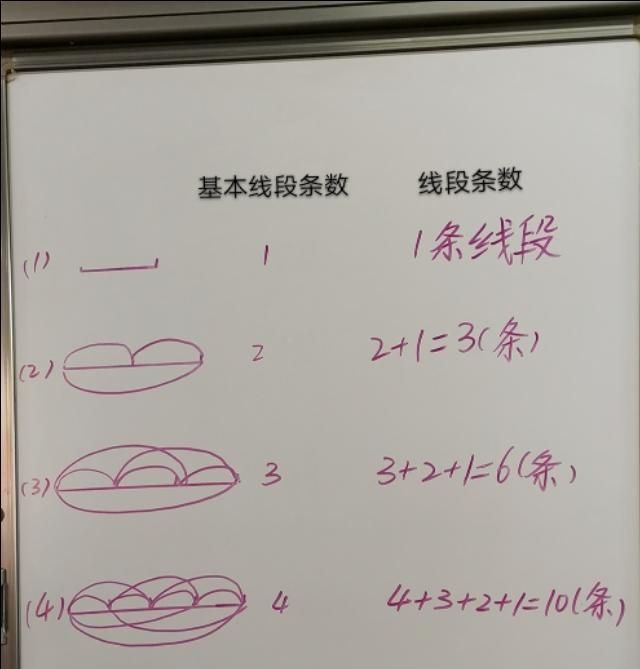 基本线段条数 线段条数
(1) 1 1条线段
(2) 2 2+1=3(条)
(3) 3 3+2+1=6(条)
(4) 4 4+3+2+1=10(条)